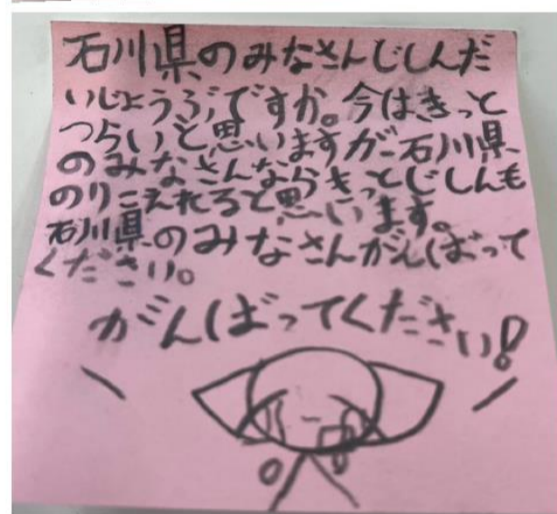 石川県のみなさんじしんだ
いじょうぶですか。今はきっと
つらいと思いますが石川県
のみなさんならきっとじしんも
のりこえれると思います。
石川県のみなさんがんばって
ください。
がんばってください!